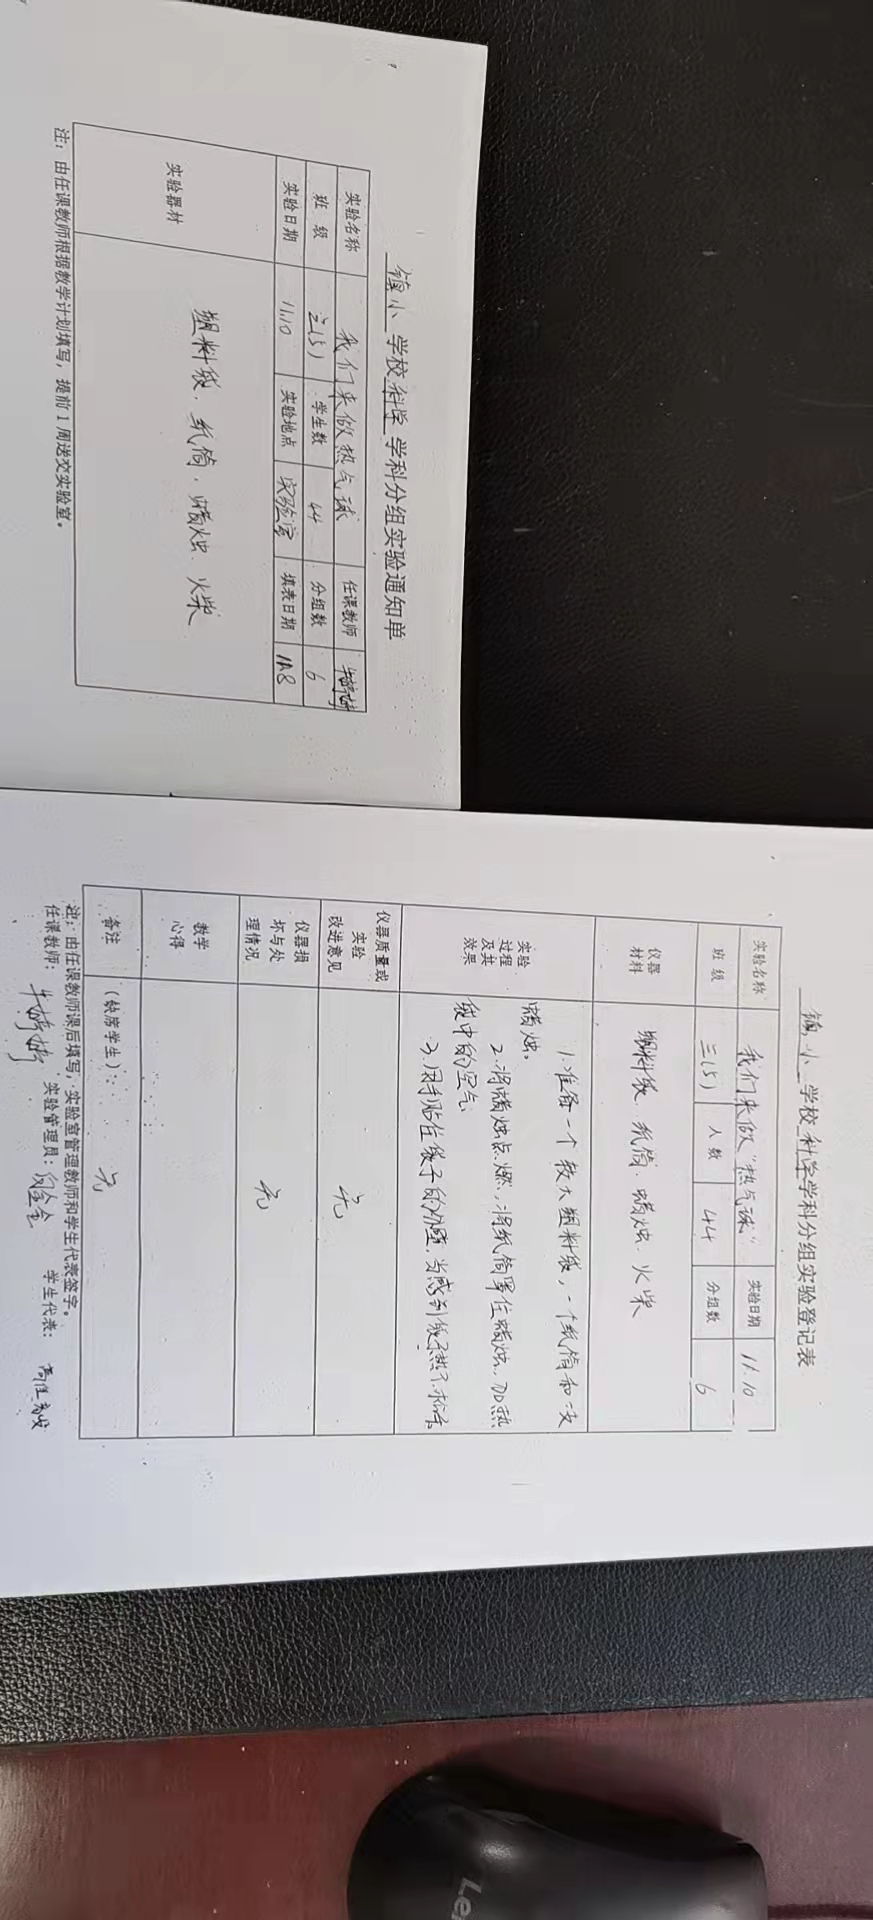 镇小学校科学学科分组实验通知单
实验名称 我们来做热气球 任课教师
班 级 三(5) 学生数 44 分组数 6
实验日期 11.10 实验地点 实验室 填表日期 11.8
实验器材 塑料袋、纸筒、蜡烛、火柴
注：由任课教师根据教学计划填写，提前1周送交实验室。
镇小学校科学学科分组实验登记表
实验名称 我们来做“热气球” 实验日期 11.10
班 级 三(5) 人 数 44 分组数 6
仪器材料 塑料袋、纸筒、蜡烛、火柴
实验过程及其效果
1.准备一个较大塑料袋，一个纸筒和一支
蜡烛。
2.将蜡烛点燃，将纸筒罩住蜡烛，加热
袋中的空气
3.用手贴住袋子的外壁，当感到袋子热了，松手
仪器质量或实验改进意见 无
仪器损坏与处理情况 无
教学心得
备注 (缺席学生)： 无
注：由任课教师课后填写，实验室管理教师和学生代表签字。
任课教师： 实验管理员： 学生代表：
Le